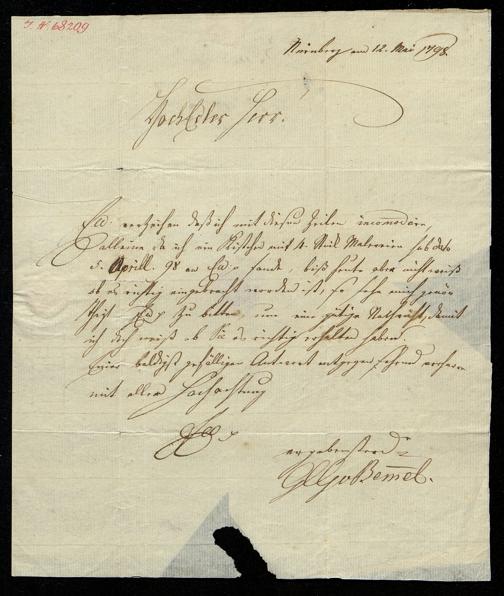 I. N. 68209
Nürnberg am 12. Mai 1798.
HochEdler Herr.
Ew. verzeihen daß ich mit diesen Zeilen incommodire,
alleine da ich ein Kistchen mit 4. Stück Malereien sub dato
5. Aprill. 98 an Ew. sande, biß heute aber nicht weiß
ob es richtig eingebracht worden ist, so sehe mich genö-
thigt Ew. zu bitten, um eine gütige Nachricht, damit
ich doch weiß ob Sie es richtig erhalten haben.
Einer baldigst gefälligen Antwort entgegen sehend
mit aller Hochachtung
Ew.
ergebenster
v Bemmel.